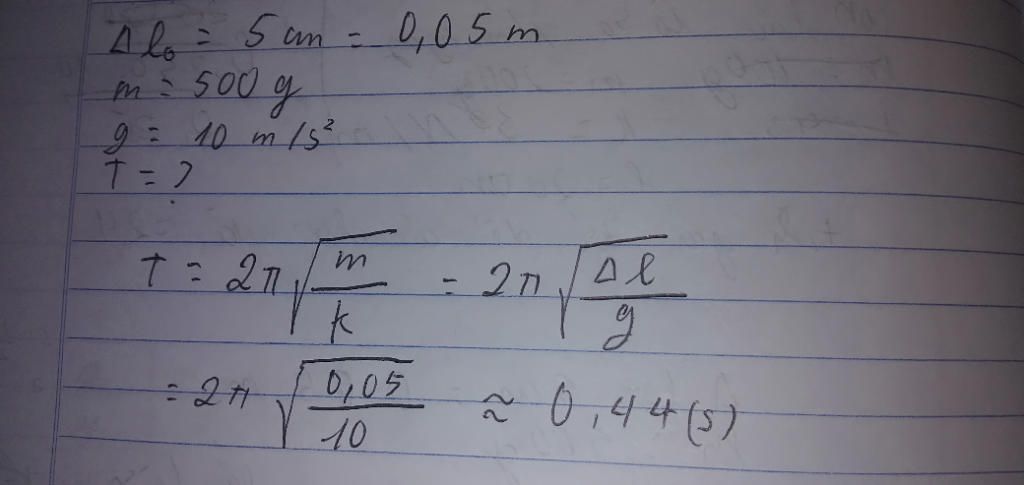 Δl₀ = 5 cm = 0,05 m
m = 500 g
g = 10 m/s²
T = ?
T = 2π√(m/k) = 2π√(Δl/g)
= 2π√(0,05/10) ≈ 0,44 (s)